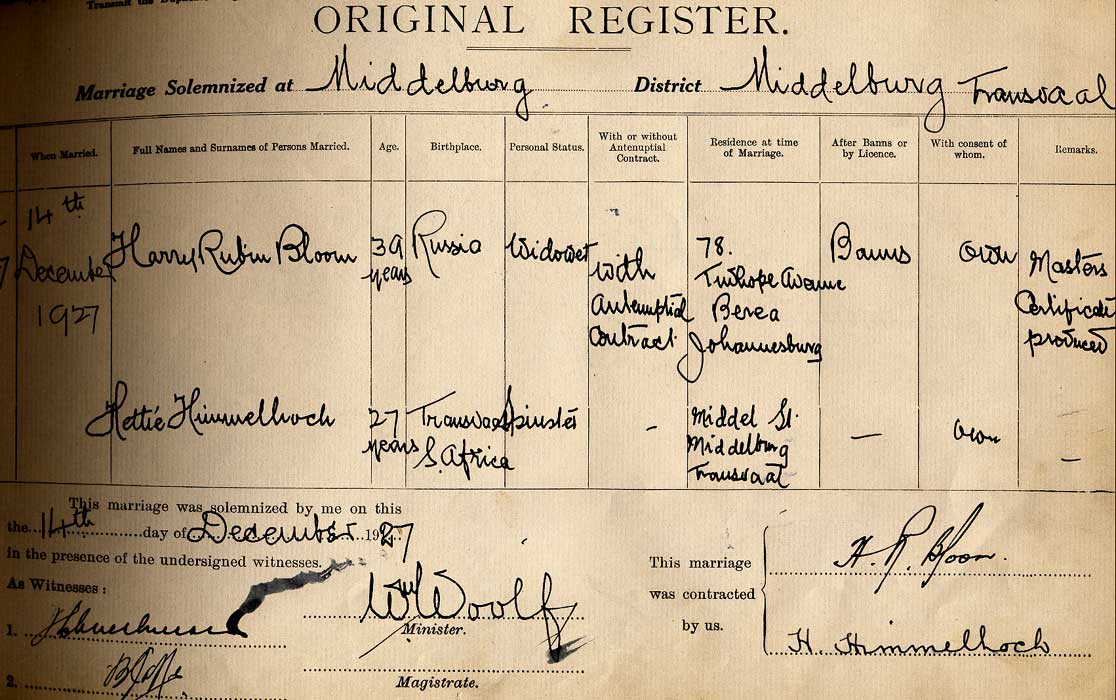 Transmit the
ORIGINAL REGISTER.
Marriage Solemnized at Middelburg District Middelburg Transvaal
When Married. Full Names and Surnames of Persons Married. Age. Birthplace. Personal Status. With or without Antenuptial Contract. Residence at time of Marriage. After Banns or by Licence. With consent of whom. Remarks.
14th December 1927 Harry Rubin Bloom 39 years Russia Widower with Antenuptial Contract 78. Berea Johannesburg Banns own Masters Certificate produced
Hettie Himmelhoch 27 years Transvaal S. Africa Spinster - Middel St Middelburg Transvaal — own -
This marriage was solemnized by me on this
the 14th day of December 1927
in the presence of the undersigned witnesses.
As Witnesses:
1.
2.
Woolf
Minister.
Magistrate.
This marriage
was contracted
by us.
H. R. Bloom.
H. Himmelhoch